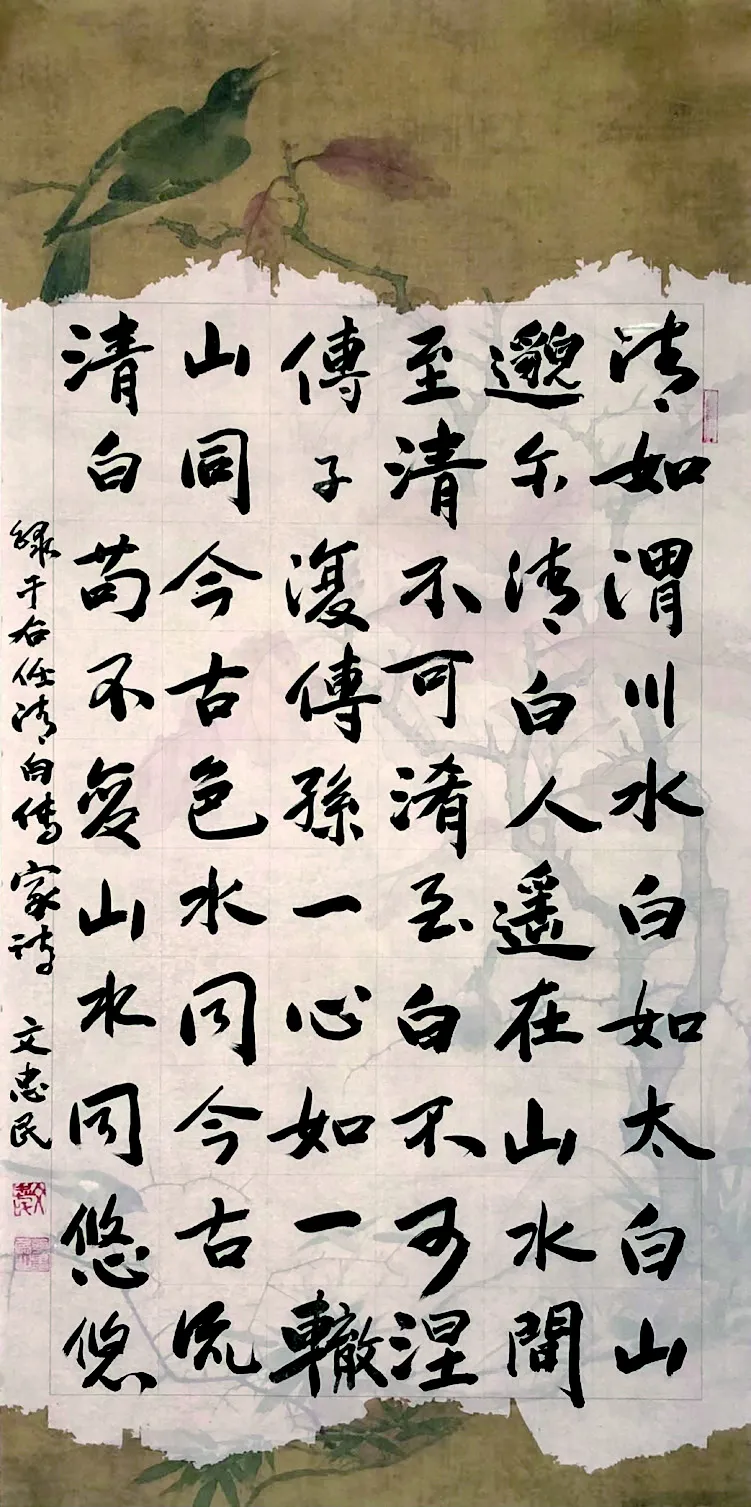 清如渭川水白如太白山
邈尔清白人遥在山水間
至清不可淆至白不可涅
傳子復傳孫一心如一轍
山同今古色水同今古流
清白苟不愛山水同悠悠
録于右任清白傳家诗 文忠民